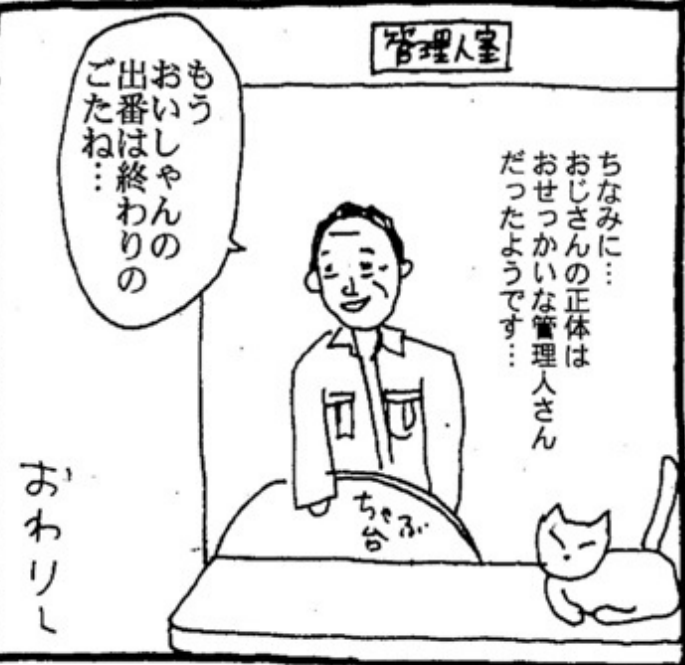 管理人室
ちなみに…
おじさんの正体は
おせっかいな管理人さん
だったようです…
もう
おいしゃんの
出番は終わりの
ごたね…
ちゃぶ
台
おわり〜